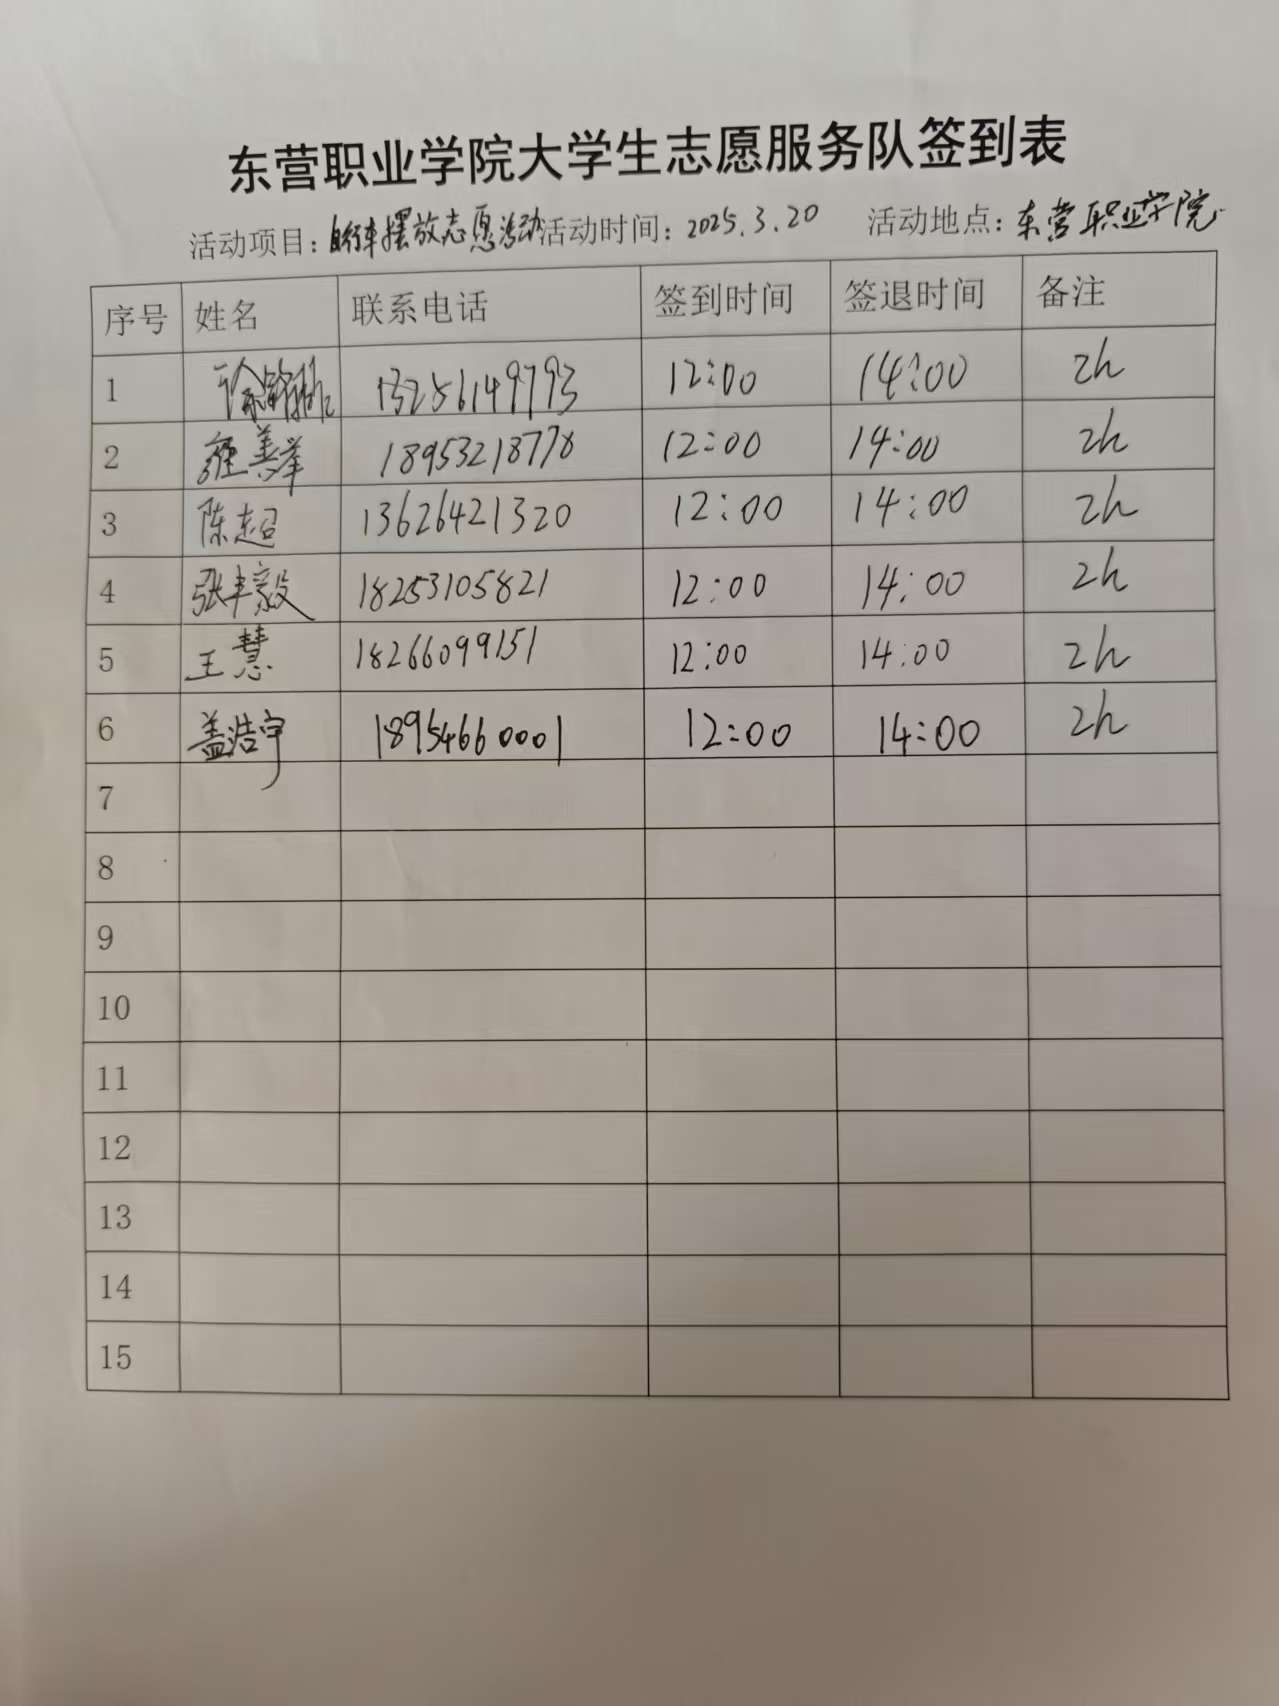 东营职业学院大学生志愿服务队签到表
活动项目：自行车摆放志愿活动 活动时间：2025.3.20 活动地点：东营职业学院
序号 姓名 联系电话 签到时间 签退时间 备注
1 徐 13256149793 12:00 14:00 2h
2 善举 18953218778 12:00 14:00 2h
3 陈超 13626421320 12:00 14:00 2h
4 张丰毅 18253105821 12:00 14:00 2h
5 王慧 18266099151 12:00 14:00 2h
6 盖浩宇 18954660001 12:00 14:00 2h
7
8
9
10
11
12
13
14
15